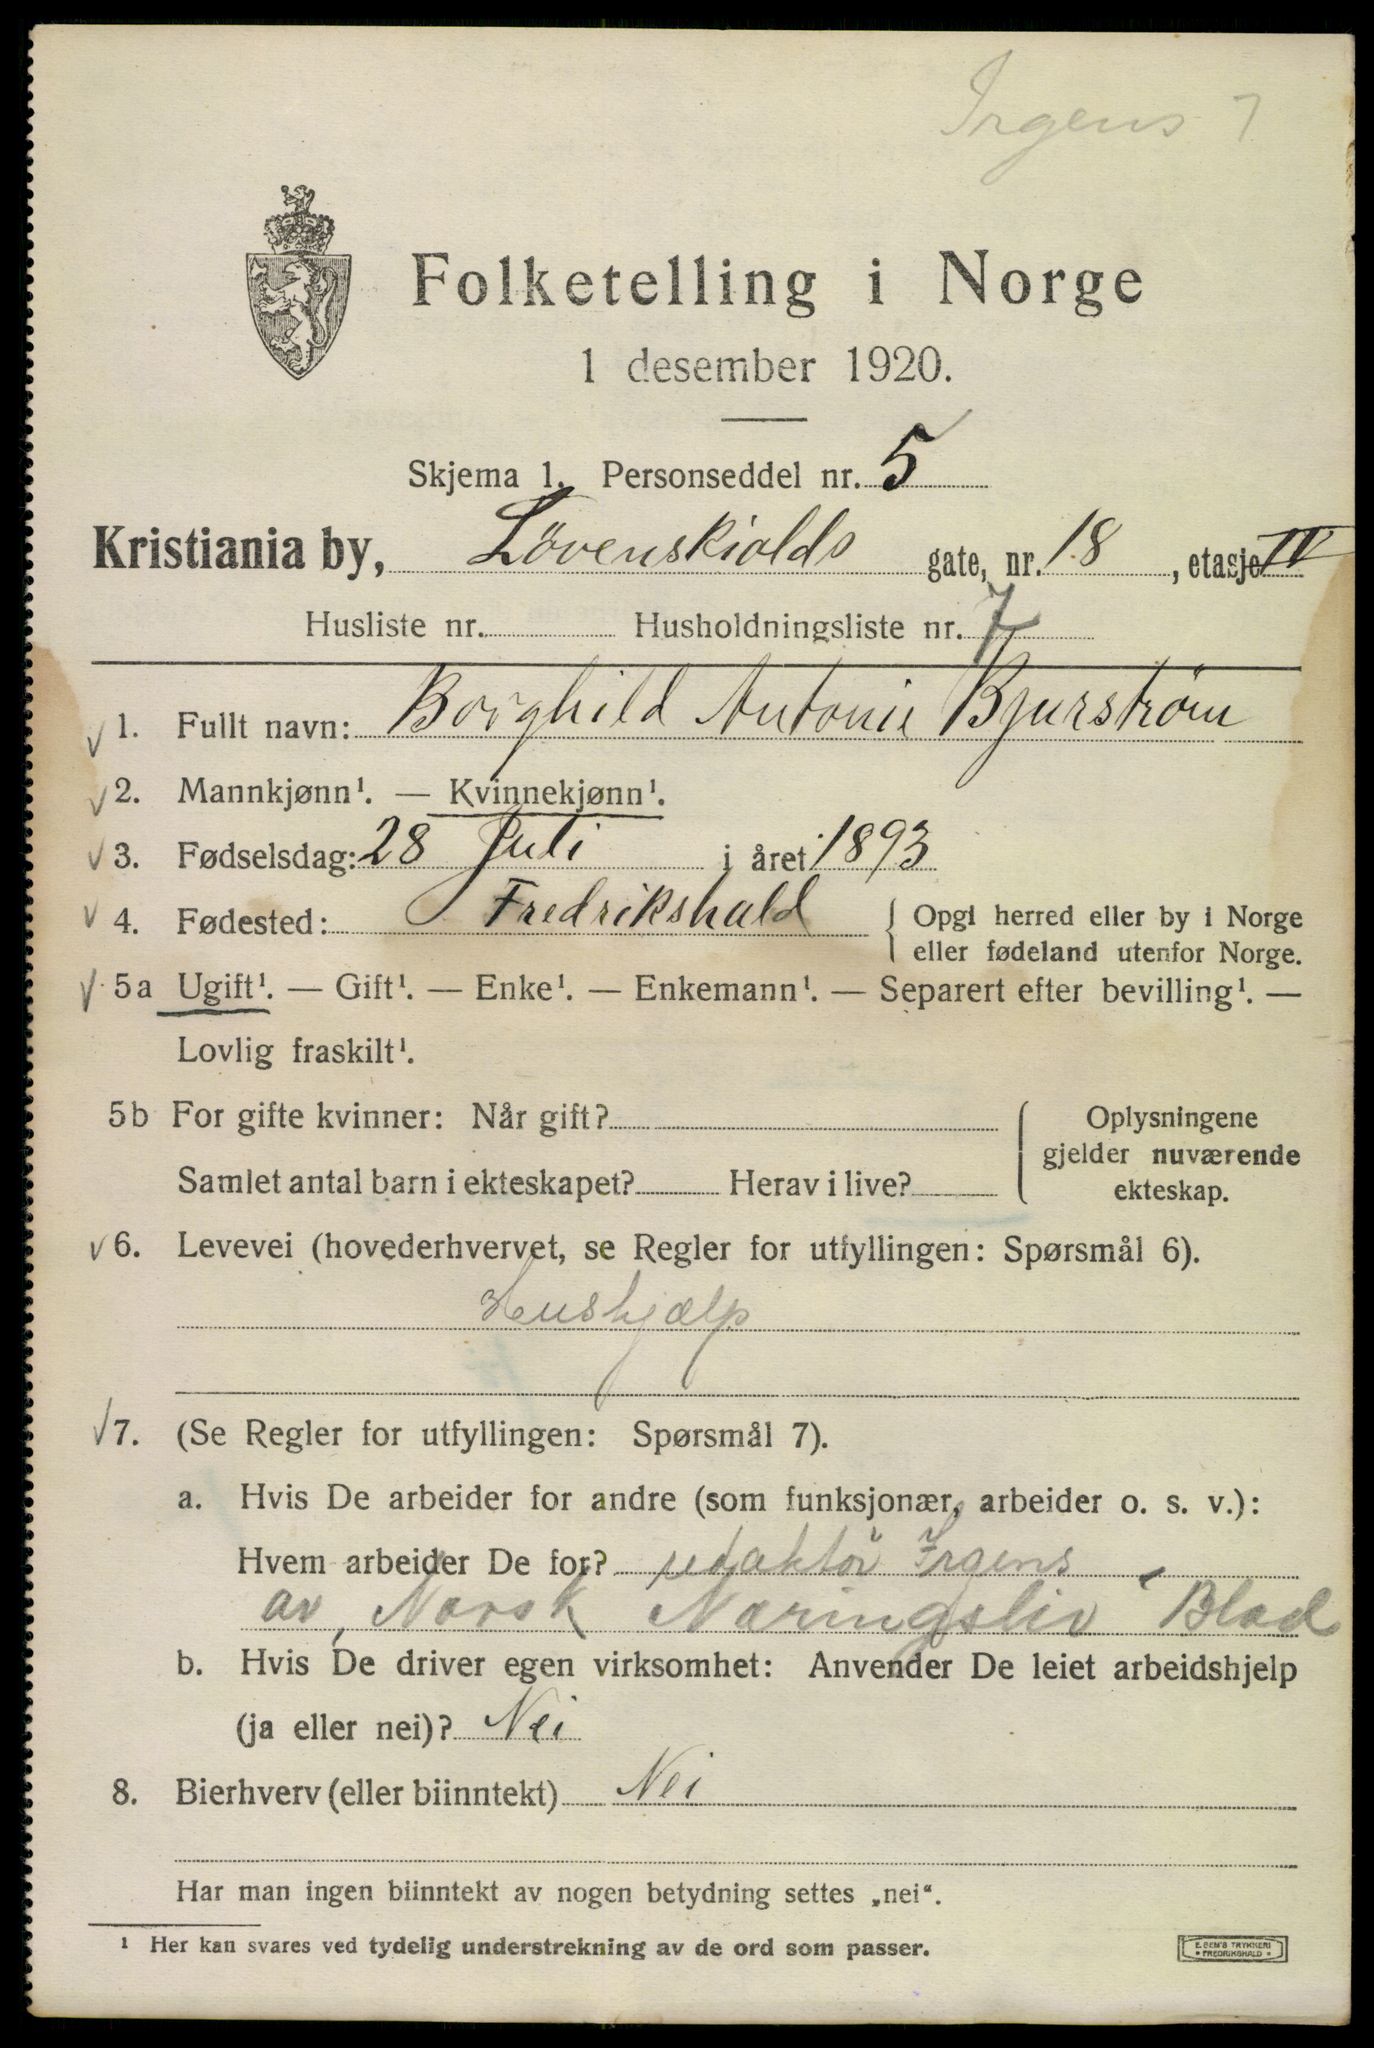 Irgens 7
Folketelling i Norge
1 desember 1920.
Skjema 1. Personseddel nr. 5
Kristiania by, Lövenskiolds gate, nr. 18, etasje IV
Husliste nr. Husholdningsliste nr. 7
1. Fullt navn: Borghild Antonie Bjurström
2. Mannkjønn¹. — Kvinnekjønn¹.
3. Fødselsdag: 28 Juli i året 1893
4. Fødested: Fredrikshald { Opgi herred eller by i Norge
eller fødeland utenfor Norge.
5a Ugift¹. — Gift¹. — Enke¹. — Enkemann¹. — Separert efter bevilling¹. —
Lovlig fraskilt¹.
5b For gifte kvinner: Når gift? Oplysningene
gjelder nuværende
Samlet antal barn i ekteskapet? Herav i live? ekteskap.
6. Levevei (hovederhvervet, se Regler for utfyllingen: Spørsmål 6).
Hushjælp
7. (Se Regler for utfyllingen: Spørsmål 7).
a. Hvis De arbeider for andre (som funksjonær, arbeider o. s. v.):
Hvem arbeider De for? redaktör Irgens
av Norsk Næringsliv Blad
b. Hvis De driver egen virksomhet: Anvender De leiet arbeidshjelp
(ja eller nei)? Nei
8. Bierhverv (eller biinntekt) Nei
Har man ingen biinntekt av nogen betydning settes „nei“.
¹ Her kan svares ved tydelig understrekning av de ord som passer.
E. SEM'S TRYKKERI
• FREDRIKSHALD •